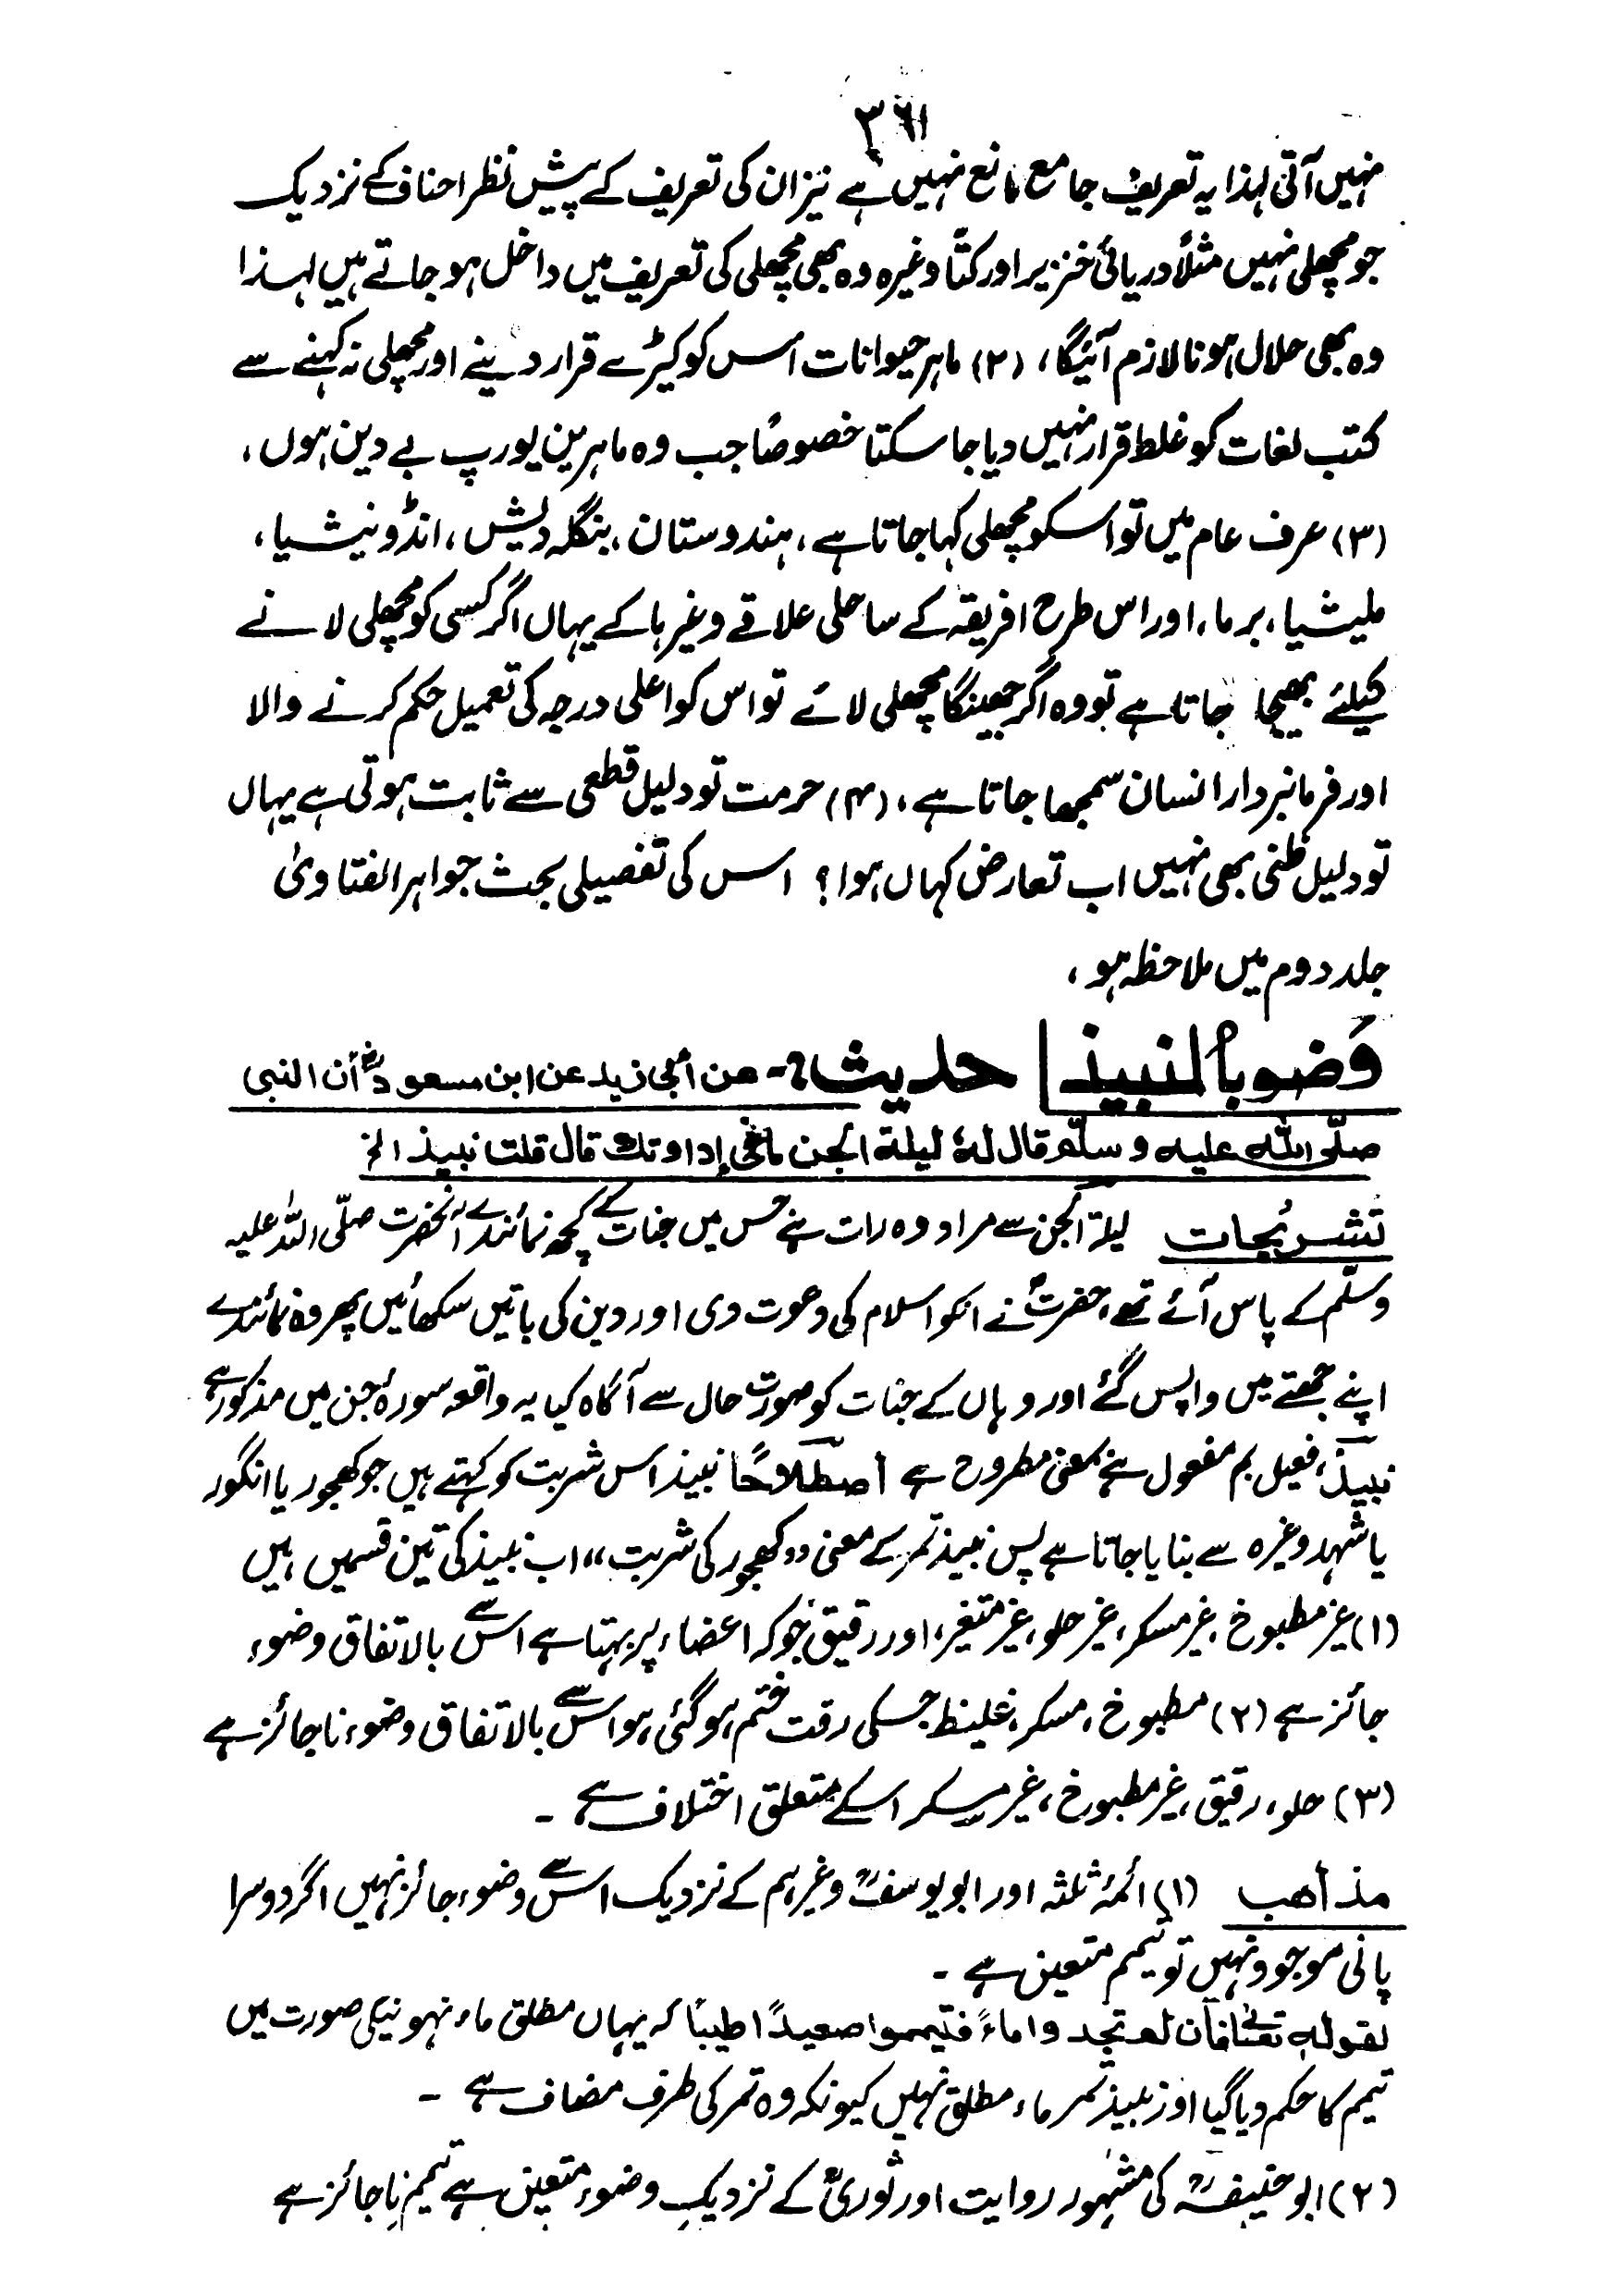 ۳۶۱
نہیں آتی لہذا یہ تعریف جامع مانع نہیں ہے نیز ان کی تعریف کے پیش نظر احناف کے نزدیک
جو مچھلی نہیں مثلاً دریائی خنزیر اور کتّا وغیرہ وہ بھی مچھلی کی تعریف میں داخل ہو جاتے ہیں لہذا
وہ بھی حلال ہونا لازم آئیگا، (۲) ماہر حیوانات اس کو کیڑے قرار دینے اور مچھلی نہ کہنے سے
کتب لغات کو غلط قرار نہیں دیا جا سکتا خصوصًا جب وہ ماہرین یورپ بے دین ہوں،
(۳) عرف عام میں تو اسکو مچھلی کہا جاتا ہے، ہندوستان، بنگلہ دیش، انڈونیشیا،
ملیشیا، برما، اور اس طرح افریقہ کے ساحلی علاقے وغیرہا کے یہاں اگر کسی کو مچھلی لانے
کیلئے بھیجا جاتا ہے تو وہ اگر جھینگا مچھلی لائے تو اس کو اعلی درجہ کی تعمیل حکم کرنے والا
اور فرمانبردار انسان سمجھا جاتا ہے، (۴) حرمت تو دلیل قطعی سے ثابت ہوتی ہے یہاں
تو دلیل ظنی بھی نہیں اب تعارض کہاں ہوا؟ اس کی تفصیلی بحث جواہر الفتاویٰ
جلد دوم میں ملاحظہ ہو،
وَضو بالنبیذ حدیث :- عن أبی زید عن ابن مسعودؓ أن النبی
صلّی اللہ علیہ وسلّم قال لہٗ لیلة الجن ما فی إداوتك قال قلت نبیذ الخ
تشریحات لیلۃ الجن سے مراد وہ رات ہے جس میں جنات کے کچھ نمائندے آنحضرت صلّی اللہ علیہ
وسلّم کے پاس آئے تھے، حضرتؐ نے انکو اسلام کی دعوت دی اور دین کی باتیں سکھائیں پھر وہ نمائندے
اپنے جتھے میں واپس گئے اور وہاں کے جنات کو صورت حال سے آگاہ کیا یہ واقعہ سورۂ جن میں مذکور ہے
نبیذ، فعیل بم مفعول ہے بمعنی مطروح ہے اصطلاحًا نبیذ اس شربت کو کہتے ہیں جو کھجور یا انگور
یا شہد وغیرہ سے بنایا جاتا ہے پس نبیذ تمر کے معنی ،،کھجور کی شربت،، اب نبیذ کی تین قسمیں ہیں
(۱) غیر مطبوخ، غیر مسکر، غیر حلو، غیر متغیر، اور رقیق جو کہ اعضاء پر بہتا ہے اس سے بالاتفاق وضوء
جائز ہے (۲) مطبوخ، مسکر، غلیظ جسکی رقت ختم ہو گئی ہو اس سے بالاتفاق وضوء ناجائز ہے
(۳) حلو، رقیق، غیر مطبوخ، غیر مسکر اسکے متعلق اختلاف ہے ۔
مذاھب (۱) ائمۂ ثلثہ اور ابو یوسفؒ وغیرہم کے نزدیک اس سے وضوء جائز نہیں اگر دوسرا
پانی موجود نہیں تو تیمم متعین ہے ۔
لقولہٖ تعالیٰ فان لم تجدوا ماءً فتیمموا صعیدًا طیبًا کہ یہاں مطلق ماء نہونیکی صورت میں
تیمم کا حکم دیا گیا اور نبیذ تمر ماء مطلق نہیں کیونکہ وہ تمر کی طرف مضاف ہے ۔
(۲) ابو حنیفہؒ کی مشہور روایت اور ثوریؒ کے نزدیک وضوء متعین ہے تیمم ناجائز ہے